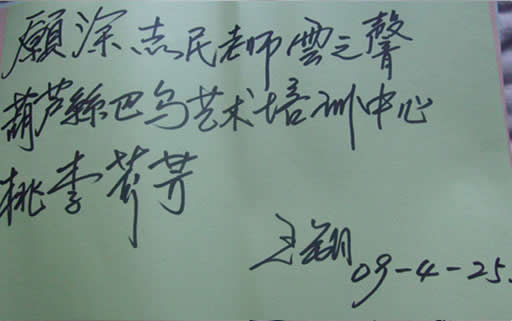 願深志民老师雲之聲
葫芦絲巴乌艺术培训中心
桃李芬芳
王翔 09-4-25.